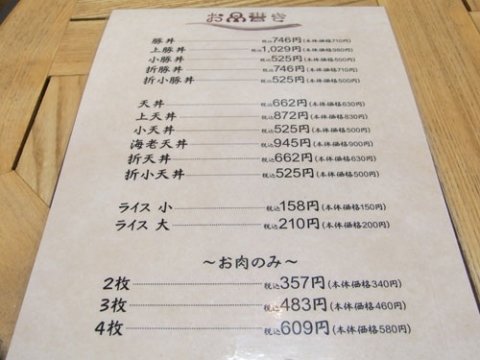 お品書き
勝丼 税込746円(本体価格710円)
上勝丼 税込1,029円(本体価格980円)
小勝丼 税込525円(本体価格500円)
折勝丼 税込746円(本体価格710円)
折小勝丼 税込525円(本体価格500円)
天丼 税込662円(本体価格630円)
上天丼 税込872円(本体価格830円)
小天丼 税込525円(本体価格500円)
海老天丼 税込945円(本体価格900円)
折天丼 税込662円(本体価格630円)
折小天丼 税込525円(本体価格500円)
ライス 小 税込158円(本体価格150円)
ライス 大 税込210円(本体価格200円)
～お肉のみ～
2枚 税込357円(本体価格340円)
3枚 税込483円(本体価格460円)
4枚 税込609円(本体価格580円)